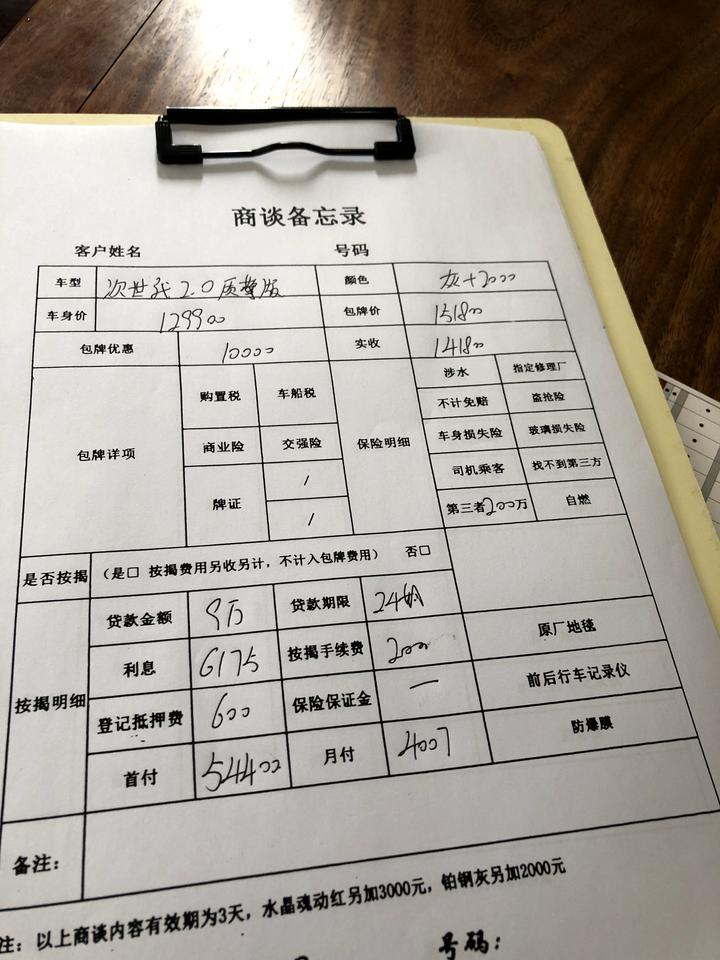 商谈备忘录
客户姓名 号码
车型 次世代2.0质尊版 颜色 灰+2000
车身价 129900 包牌价 151800
包牌优惠 10000 实收 141800
包牌详项 购置税 车船税 保险明细 涉水 指定修理厂
不计免赔 盗抢险
商业险 交强险 车身损失险 玻璃损失险
牌证 / 司机乘客 找不到第三方
/ 第三者200万 自燃
是否按揭 (是□ 按揭费用另收另计，不计入包牌费用) 否□
按揭明细 贷款金额 9万 贷款期限 24期
利息 6175 按揭手续费 2000 原厂地毯
登记抵押费 600 保险保证金 一 前后行车记录仪
首付 54400 月付 4007 防爆膜
备注：
注：以上商谈内容有效期为3天，水晶魂动红另加3000元，铂钢灰另加2000元
号码：